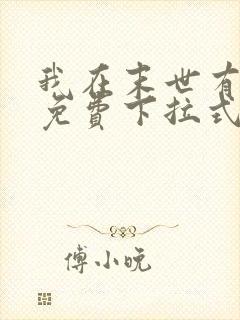 我在末世有
免费下拉式
傅小晚